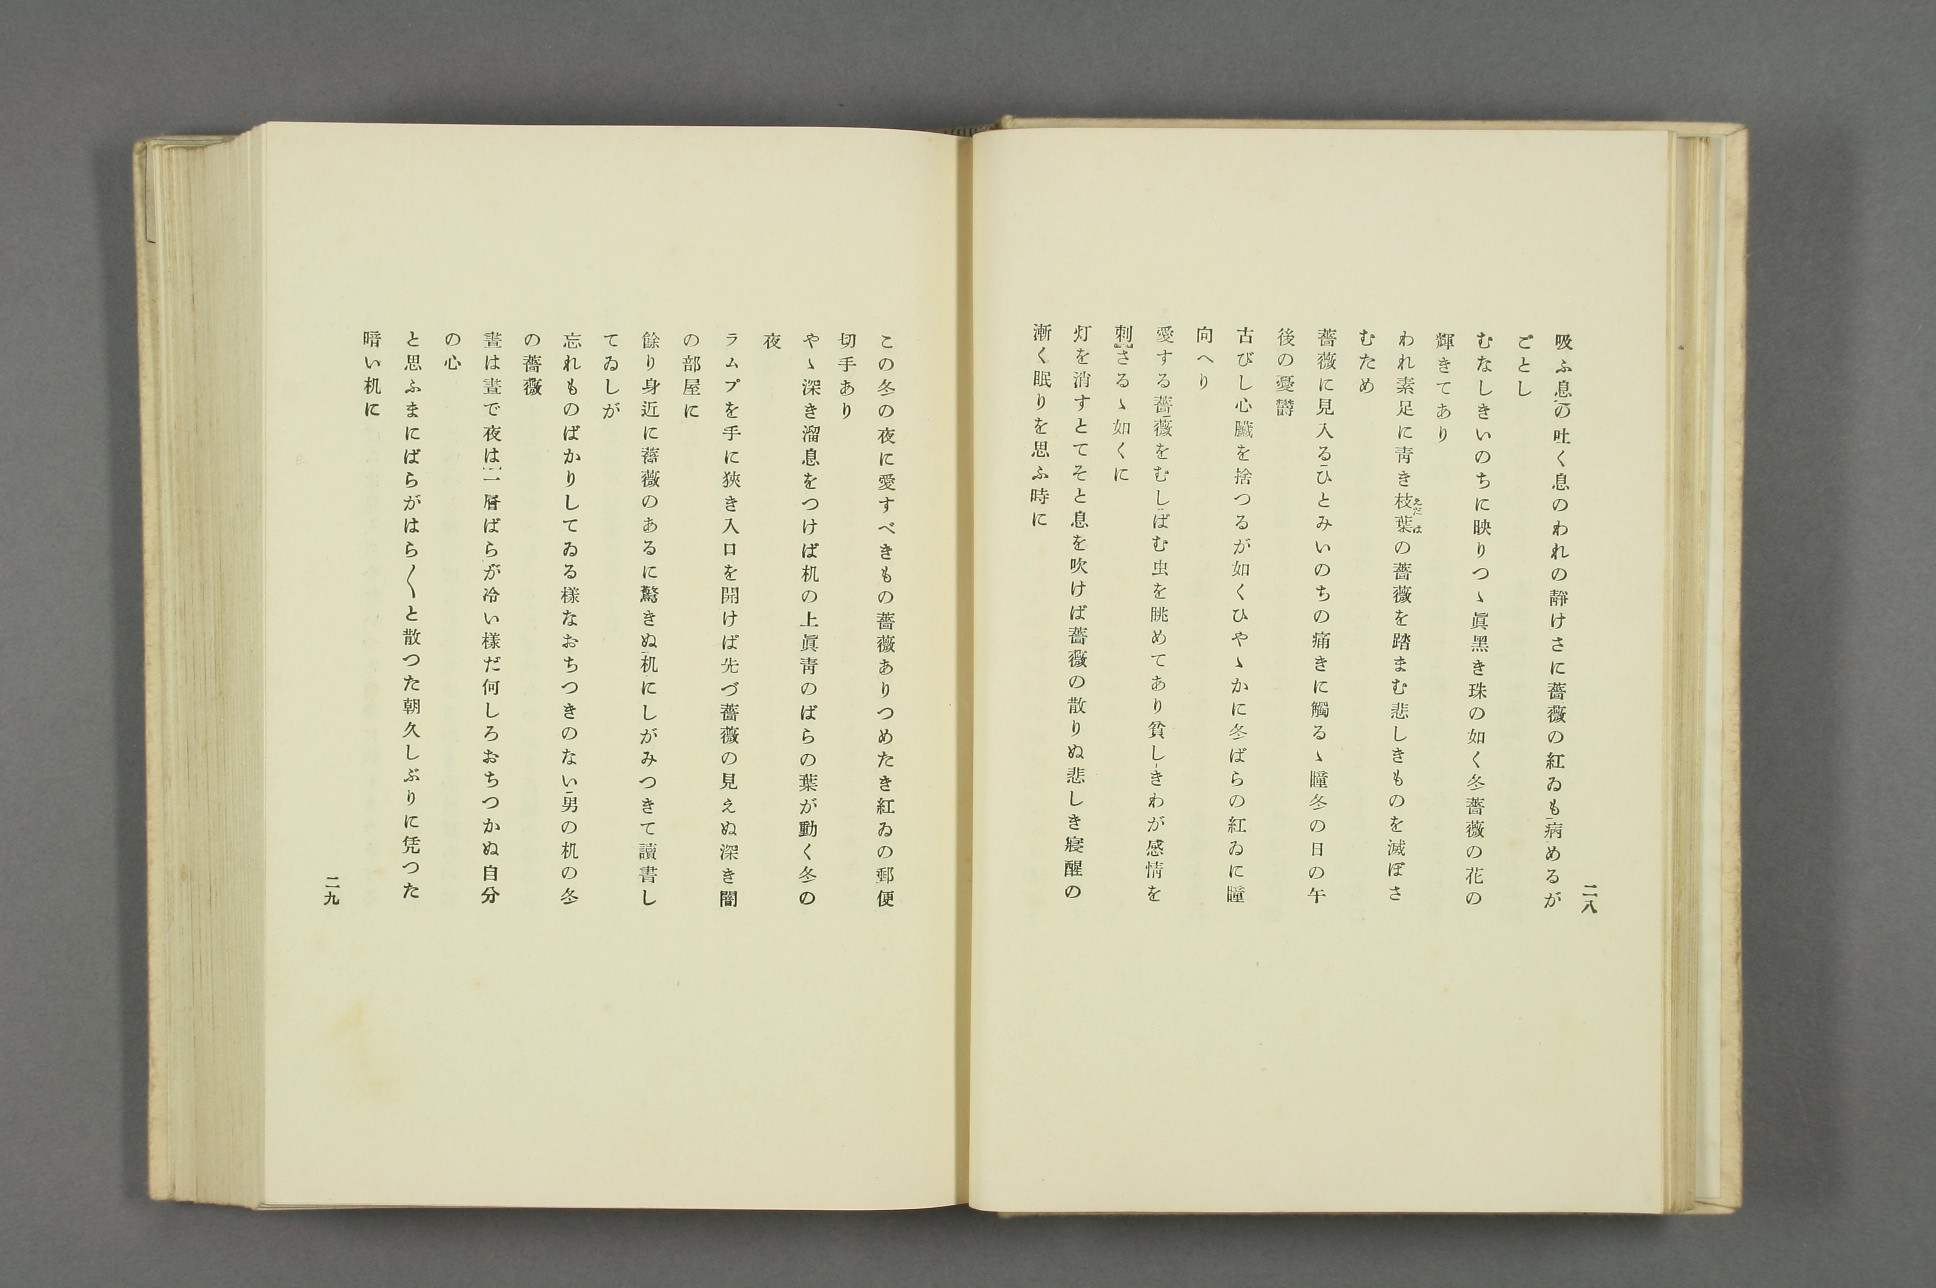 二八
吸ふ息の吐く息のわれの靜けさに薔薇の紅ゐも病めるが
ごとし
むなしきいのちに映りつゝ眞黑き珠の如く冬薔薇の花の
輝きてあり
われ素足に靑き枝葉の薔薇を踏まむ悲しきものを滅ぼさ
えだは
むため
薔薇に見入るひとみいのちの痛きに觸るゝ瞳冬の日の午
後の憂欝
古びし心臟を捨つるが如くひやゝかに冬ばらの紅ゐに瞳
向へり
愛する薔薇をむしばむ虫を眺めてあり貧しきわが感情を
刺さるゝ如くに
灯を消すとてそと息を吹けば薔薇の散りぬ悲しき寢醒の
漸く眠りを思ふ時に
この冬の夜に愛すべきもの薔薇ありつめたき紅ゐの郵便
切手あり
やゝ深き溜息をつけば机の上眞靑のばらの葉が動く冬の
夜
ラムプを手に狹き入口を開けば先づ薔薇の見えぬ深き闇
の部屋に
餘り身近に薔薇のあるに驚きぬ机にしがみつきて讀書し
てゐしが
忘れものばかりしてゐる樣なおちつきのない男の机の冬
の薔薇
晝は晝で夜は一層ばらが冷い樣だ何しろおちつかぬ自分
の心
と思ふまにばらがはら〳〵と散つた朝久しぶりに凭つた
暗い机に
二九